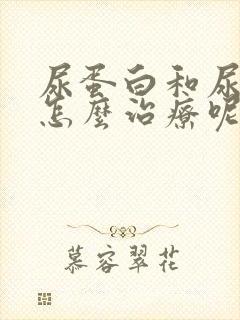 尿蛋白和尿
怎麼治療呢
慕容翠花